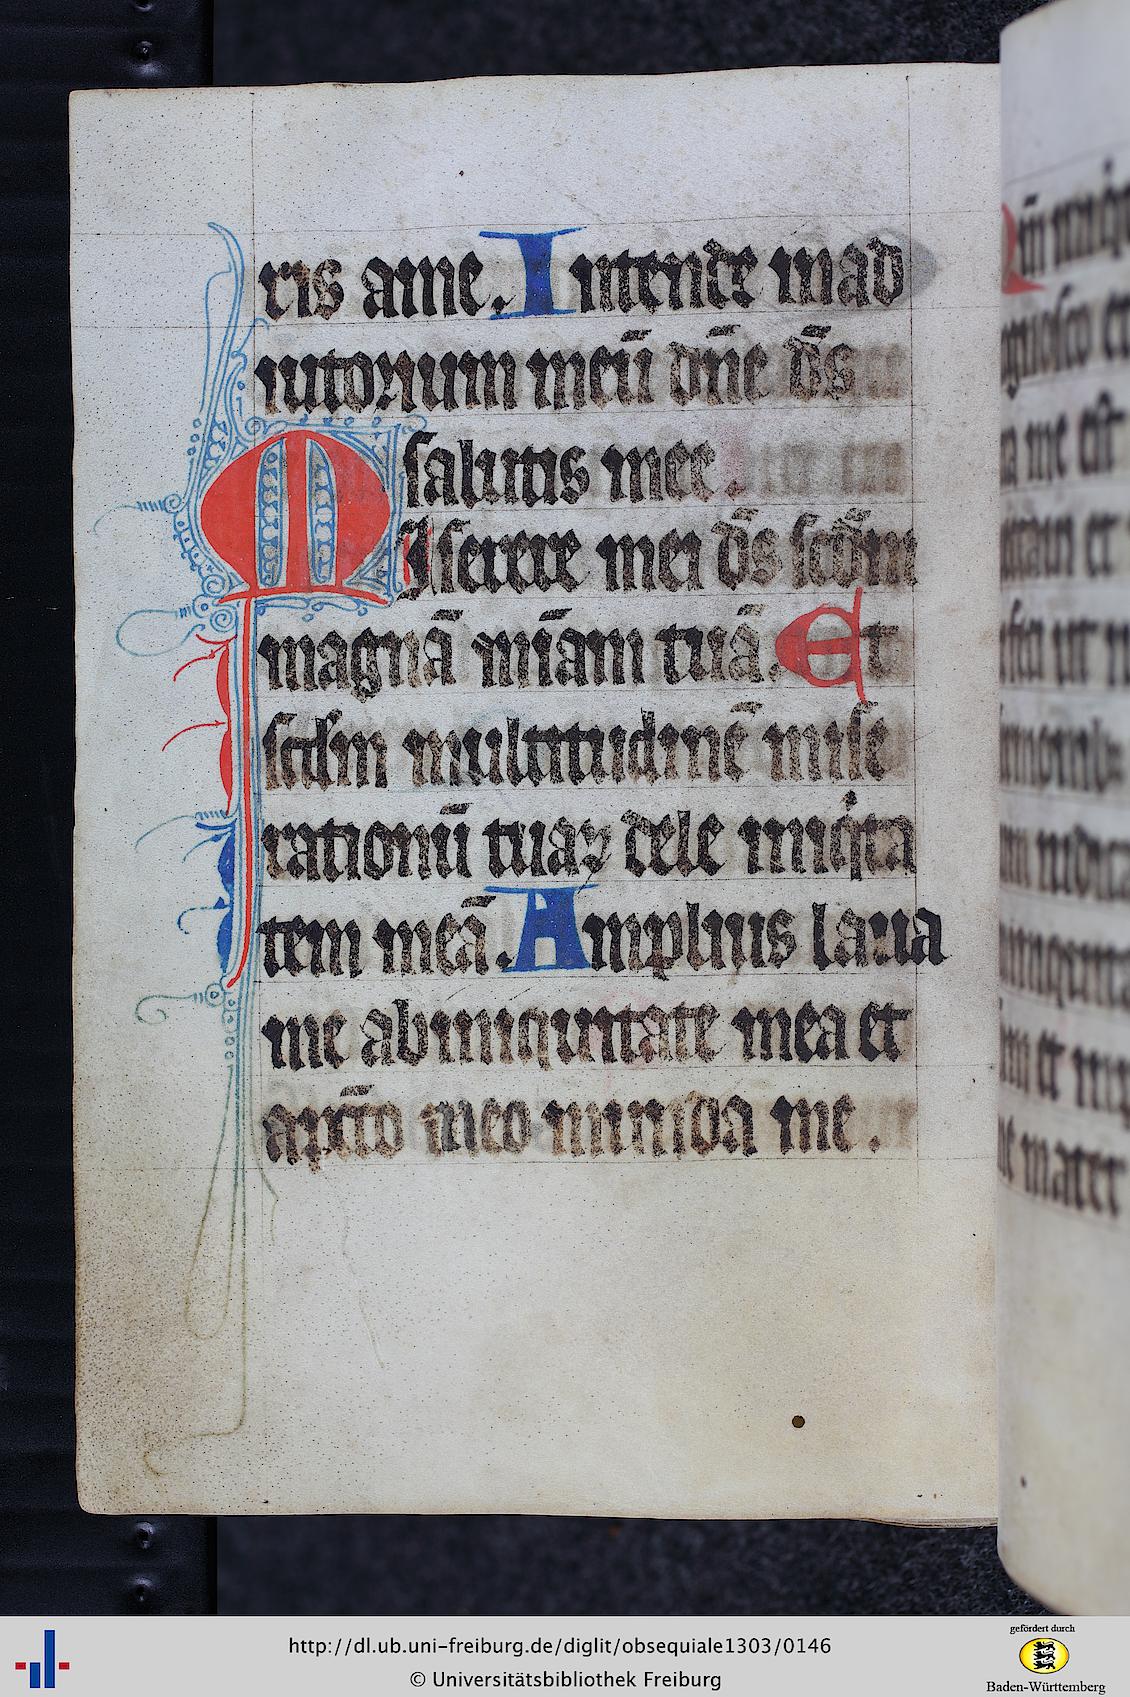 ris a me. Intende in ad
iutorium meū dn̄e ds̄
salutis mee.
Miserere mei ds̄ scd̄m
magnā mīam tuā. Et
scd̄m multitudinē mise
rationū tuaꝝ dele iniqͥta
tem meā. Amplius laua
me ab iniquitate mea et
a pctō meo munda me.
http://dl.ub.uni-freiburg.de/diglit/obsequiale1303/0146
© Universitätsbibliothek Freiburg
gefördert durch
Baden-Württemberg